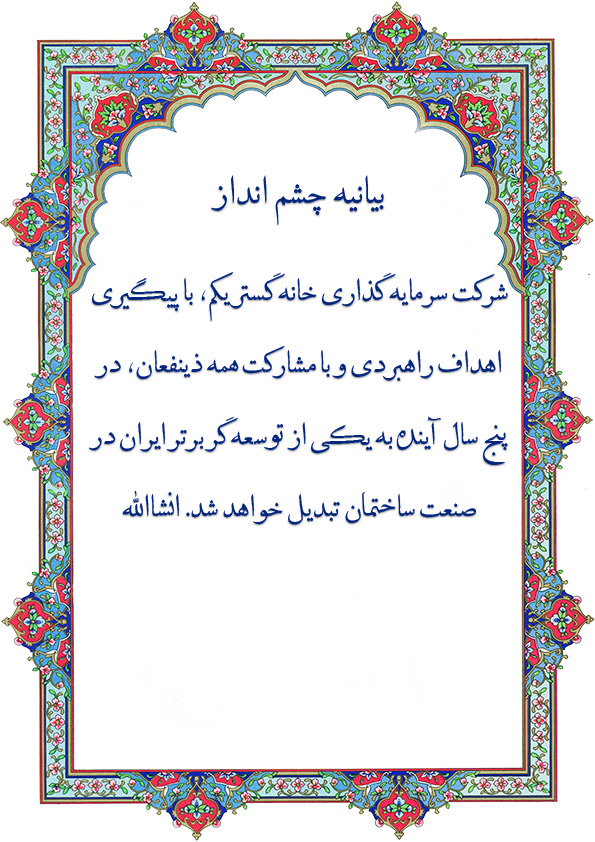 بیانیه چشم انداز
شرکت سرمایه‌گذاری خانه‌گستر یکم، با پیگیری
اهداف راهبردی و با مشارکت همه ذینفعان، در
پنج سال آینده به یکی از توسعه‌گر برتر ایران در
صنعت ساختمان تبدیل خواهد شد. انشاالله